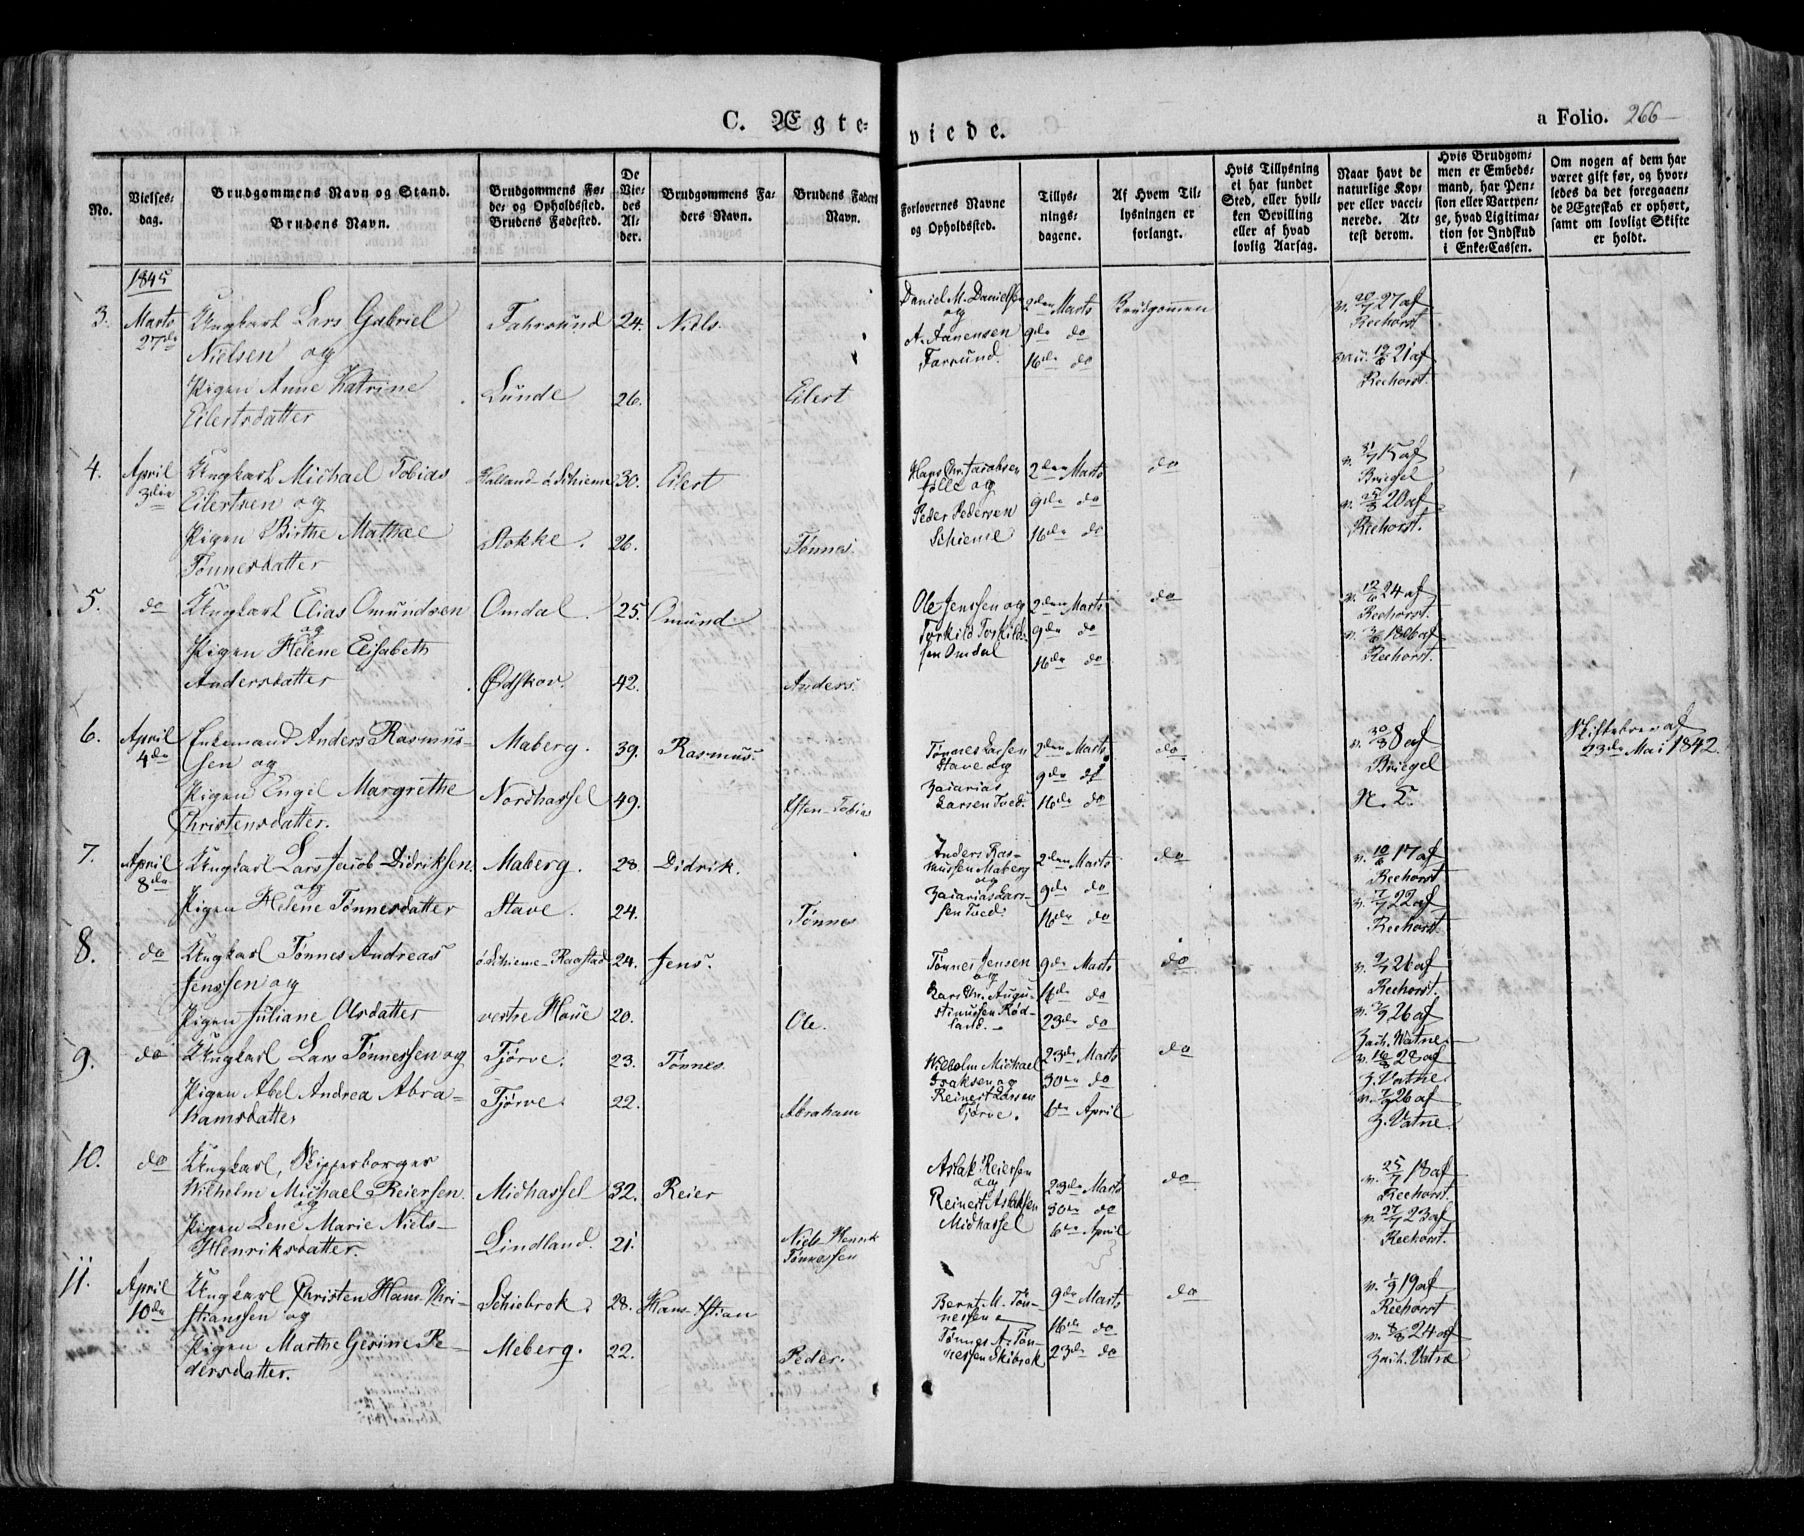 C. Ægte-
viede.
a Folio. 266
No.
Vielses-
dag.
Brudgommens Navn og Stand.
Brudens Navn.
Brudgommens Fø-
de- og Opholdssted.
Brudens Fødested.
De
Vie-
des
Al-
der.
Brudgommens Fa-
ders Navn.
Brudens Faders
Navn.
Forlovernes Navne
og Opholdssted.
Tillys-
nings-
dagene.
Af Hvem Til-
lysningen er
forlangt.
Hvis Tillysning
ei har fundet
Sted, eller hvil-
ken Bevilling
eller af hvad
lovlig Aarsag.
Naar havt de
naturlige Kop-
per eller vacci-
nerede. At-
test derom.
Hvis Brudgom-
men er Embeds-
mand, har Pen-
sion eller Vartpen-
ge, hvad Ligitima-
tion for Indskud
i Enke-Cassen.
Om nogen af dem har
været gift før, og hvor-
ledes da det foregaaen-
de Ægteskab er ophørt,
samt om lovligt Skifte
er holdt.
1845
3. Marts 27de
Ungkarl Lars Gabriel
Nielsen og
Pigen Anne Katrine
Eilertsdatter
Fahrsund 24. Niels.
Lunde 26. Eilert
Daniel M. Danielsen
og
A. Aanensen
Farsund.
2den Marts
9de do
16de do
Brudgommen
v. 20/7 27 af
Reehorst
12/6 21 af
Reehorst.
4. April 3die
Ungkarl Michael Tobias
Eilertsen og
Pigen Birthe Mathæ
Tønnesdatter
Halland - ö. Schieme 30. Eilert
Stokke. 26. Tønnes.
Hans Chr. Jacobsen
og
Peder Pedersen
Schieme
2den Marts
9de do
16de do
do
15 af
Briegel
20 af
Reehorst.
5. do
Ungkarl Elias Omundsen
og
Pigen Helene Elisabeth
Andersdatter
Omdal. 25. Omund
Ødskov. 42. Anders.
Ole Jenssen og
Torkild Torkild-
sen Omdal
2den Marts
9de do
16de do
do
v. 12/6 24 af
Reehorst.
1806 af
Reehorst.
6. April 4de
Enkemand Anders Rasmus-
sen og
Pigen Engel Margrethe
Christensdatter.
Maberg. 39. Rasmus.
Nordhassel 49. Tobias
Tønnes Larsen
Stave og
Zacarias
Larsen Tved.
2den Marts
9de do
16de do
do
v. 30/8 8 af
Briegel
Skiftebrev af
23de Mai 1842.
7. April 8de
Ungkarl Lars Jacob Didriksen
og
Pigen Helene Tønnesdatter
Maberg. 28. Didrik.
Stave. 24. Tønnes
Anders Ras-
mussen Maberg
og
Zacarias Lar-
sen Tved.
2den Marts
9de do
16de do
do
17 af
Reehorst.
22 af
Reehorst.
8. do
Ungkarl Tønnes Andreas
Jenssen og
Pigen Juliane Olsdatter
ö. Schieme - Raastad 24. Jens.
vestre Haue 20. Ole.
Tønnes Jensen
og
Lars Chr. Augu-
stinussen Rød-
land.
9de Marts
16de do
23de do
do
v. 9/7 26 af
Reehorst.
26 af
Zach. Vatne.
9. do
Ungkarl Lars Tønnessen og
Pigen Abel Andrea Abra-
hamsdatter
Tjørve. 23. Tønnes.
Tjørve. 22. Abraham
Wilhelm Michael
Isaksen og
Reinert Larsen
Tjørve.
23de Marts
30te do
6te April
do
v. 16/8 28 af
Z. Vatne
26 af
Z. Vatne.
10. do
Ungkarl, Skipperborger
Wilhelm Michael Reiersen.
og
Pigen Lene Marie Niels-
Henriksdatter.
Midhassel 32. Reier
Lindland. 21. Niels Henrik
Tønnessen
Aslak Reiersen
og
Reinert Aslaksen
Midhassel
23de Marts
30te do
6te April
do
v. 25/7 18 af
Reehorst.
v. 27/7 23 af
Reehorst.
11. April 10de
Ungkarl Christen Hans Chri-
stianssen og
Pigen Marthe Gesine Pe-
dersdatter.
Schiebrok. 28. Hans
Meberg. 22. Peder.
Bernt M. Tøn-
nessen
Tønnes A. Tøn-
nessen Skibrok
9de Marts
16de do
23de do
do
v. 1/9 19 af
Reehorst
v. 8/8 24 af
Zach. Vatne